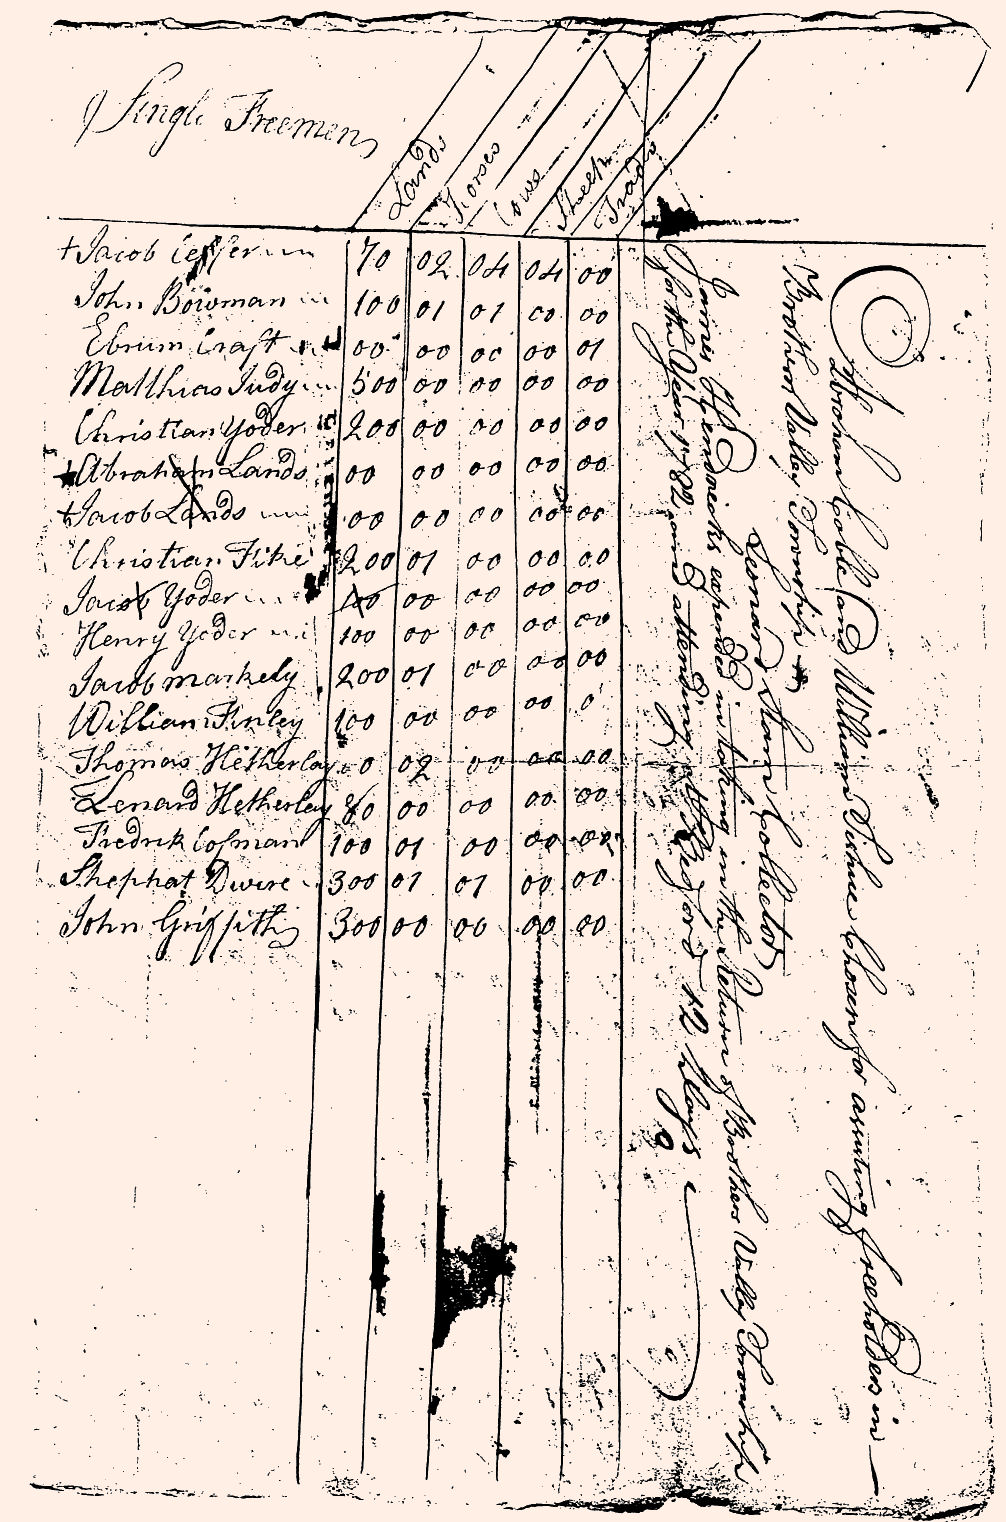 Single Freemen
Lands Horses Cows Sheep Trads
+ Jacob 70 02 04 04 00
John Bowman 100 01 01 00 00
Ebrum Craft 00 00 00 00 01
Matthias Judy 500 00 00 00 00
Christian Yoder 200 00 00 00 00
+ Abraham Lands 00 00 00 00 00
+ Jacob Lands 00 00 00 00 00
Christian Fike 200 01 00 00 00
Jacob Yoder 100 00 00 00 00
Henry Yoder 100 00 00 00 00
Jacob markely 200 01 00 00 00
William Finley 100 00 00 00 0
Thomas Hetherley 00 02 00 00 00
Lenard Hetherley 80 00 00 00 00
Fredrik Cosman 100 01 00 00 00
Shephat Dwire 300 01 01 00 00
John Griffith 300 00 00 00 00
Abraham Cable and William Tishue Chosen for assisting freeholders in
Brothers Valley Township
Leonard Stam Collector
James Hendricks expended in taking in the Return of Brothers Valley Township
for the Year 1782 and attending at Bedford 12 Days